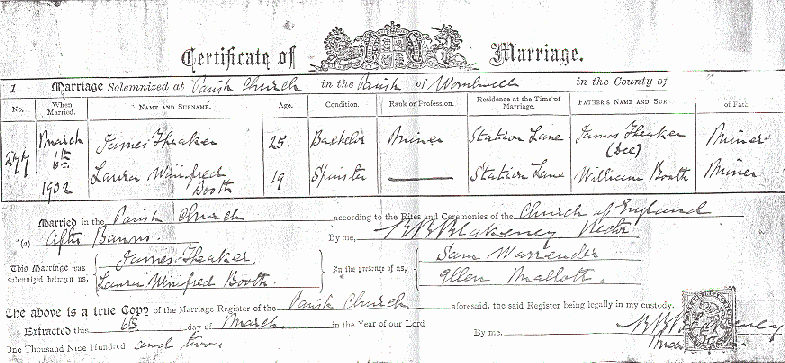 Certificate of Marriage.
1 Marriage Solemnized at Parish Church in the Parish of Wombwell in the County of
No. When Married. NAME AND SURNAME. Age. Condition. Rank or Profession. Residence at the Time of Marriage. FATHER'S NAME AND SUR of Fath
277 March 6th 1902 James Theaker 25 Bachelor Miner Station Lane James Theaker (Dec) Miner
Laura Winifred Booth 19 Spinster Station Lane William Booth Miner
Married in the Parish Church according to the Rites and Ceremonies of the Church of England
after Banns. By me, Rector
This Marriage was solemnized between us, James Theaker Laura Winifred Booth In the presence of us, Sam Warrender Ellen Mallott
The above is a true Copy of the Marriage Register of the Parish Church aforesaid, the said Register being legally in my custody.
Extracted this 6th day of March in the Year of our Lord
One Thousand Nine Hundred and two. By me,